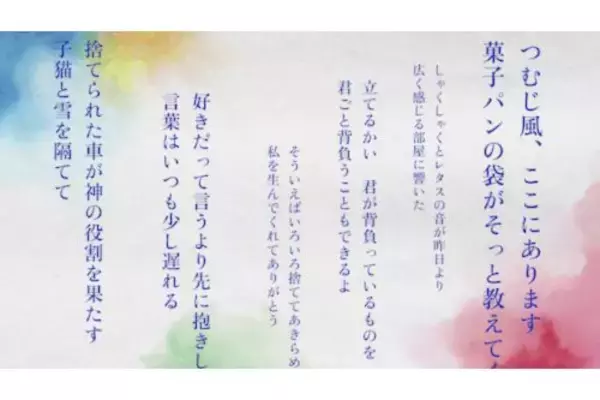 つむじ風、ここにあります
菓子パンの袋がそっと教えてく
しゃくしゃくとレタスの音が昨日より
広く感じる部屋に響いた
立てるかい　君が背負っているものを
君ごと背負うこともできるよ
そういえばいろいろ捨ててあきらめ
私を生んでくれてありがとう
好きだって言うより先に抱きし
言葉はいつも少し遅れる
捨てられた車が神の役割を果たす
子猫と雪を隔てて